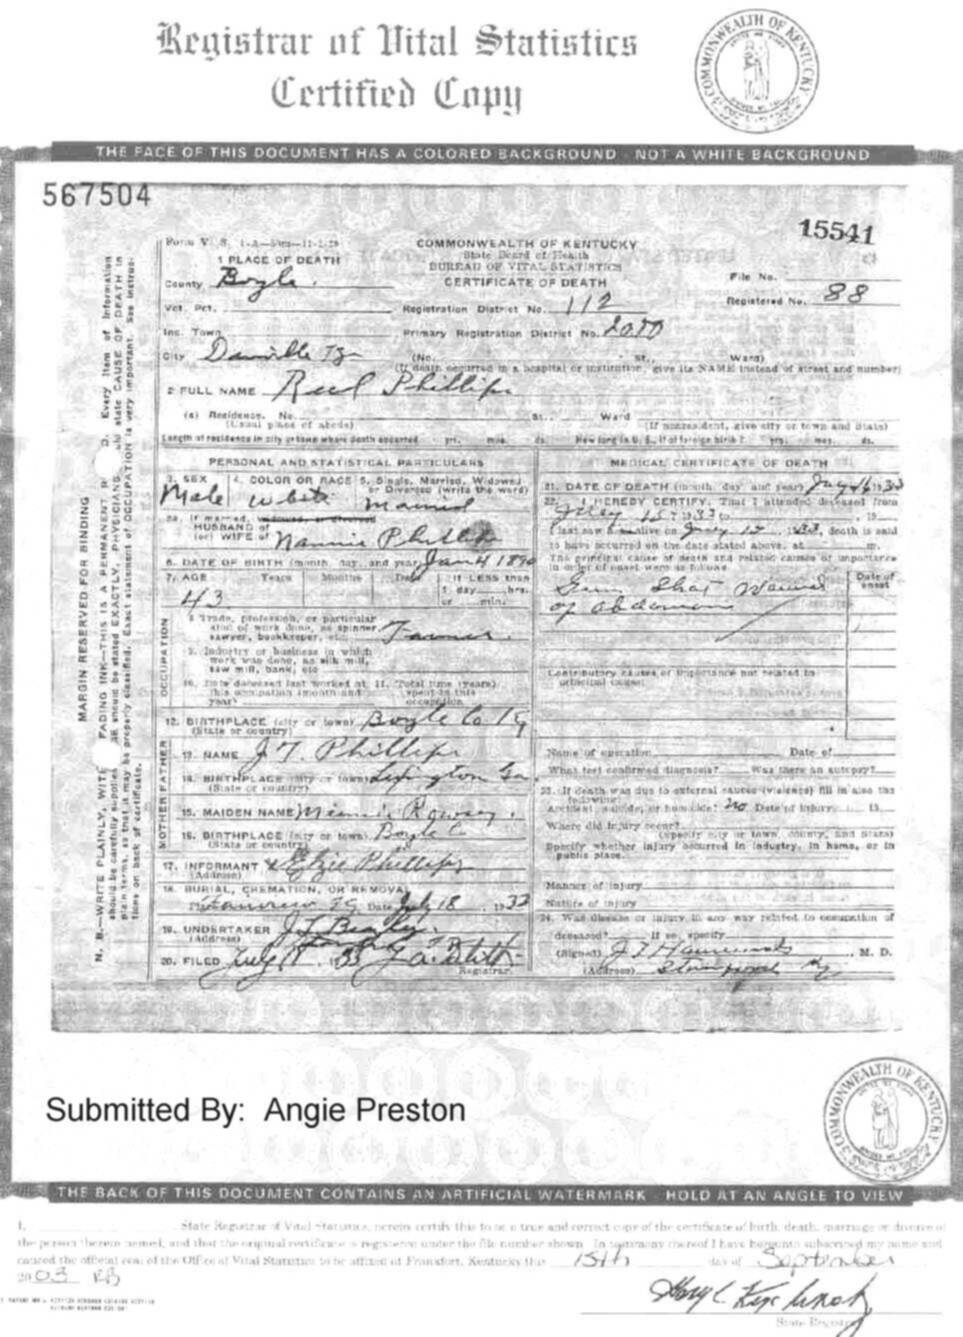 Registrar of Vital Statistics
Certified Copy
COMMONWEALTH OF KENTUCKY
THE FACE OF THIS DOCUMENT HAS A COLORED BACKGROUND - NOT A WHITE BACKGROUND
567504
15541
1 PLACE OF DEATH
County Boyle
Vot. Pct.
Inc. Town
City Danville Ky
COMMONWEALTH OF KENTUCKY
State Board of Health
BUREAU OF VITAL STATISTICS
CERTIFICATE OF DEATH
File No.
Registered No. 88
Registration District No. 112
Primary Registration District No.
(No. St., Ward)
(If death occurred in a hospital or institution, give its NAME instead of street and number)
2 FULL NAME Phillips
(a) Residence. No. St. Ward
(Usual place of abode) (If nonresident, give city or town and State)
Length of residence in city or town where death occurred yrs. mos. ds. How long in U. S., if of foreign birth? yrs. mos. ds.
PERSONAL AND STATISTICAL PARTICULARS
3. SEX 4. COLOR OR RACE 5. Single, Married, Widowed
or Divorced (write the word)
Male white Married
5a. If married, widowed, or divorced
HUSBAND of
(or) WIFE of Nannie Phillips
6. DATE OF BIRTH (month, day, and year) Jan 4 1890
7. AGE Years Months Days If LESS than
1 day hrs.
or min.
43
OCCUPATION
8 Trade, profession, or particular
kind of work done, as spinner,
sawyer, bookkeeper, etc. Farmer
9. Industry or business in which
work was done, as silk mill,
saw mill, bank, etc
10. Date deceased last worked at
this occupation (month and
year)
11. Total time (years)
spent in this
occupation
12. BIRTHPLACE (city or town) Boyle Co Ky
(State or country)
MOTHER FATHER
13. NAME J. T. Phillips
14. BIRTHPLACE (city or town)
(State or country)
15. MAIDEN NAME
16. BIRTHPLACE (city or town) Boyle C
(State or country)
17. INFORMANT Elzie Phillips
18. BURIAL, CREMATION, OR REMOVAL
Date July 18, 1933
19. UNDERTAKER
(Address)
20. FILED July 18 1933
Registrar.
MEDICAL CERTIFICATE OF DEATH
21. DATE OF DEATH (month, day, and year) July 16 1933
22. I HEREBY CERTIFY, That I attended deceased from
July 15 1933 to , 19
I last saw alive on July 15, 1933, death is said
to have occurred on the date stated above, at m.
The principal cause of death and related causes of importance
in order of onset were as follows:
Date of
onset
Gun Shot Wound
of abdomen
Contributory causes of importance not related to
principal cause:
Name of operation Date of
What test confirmed diagnosis? Was there an autopsy?
23. If death was due to external causes (violence) fill in also the
following:
Accident, suicide, or homicide? no Date of injury 19
Where did injury occur?
(Specify city or town, county, and State)
Specify whether injury occurred in industry, in home, or in
public place.
Manner of injury
Nature of injury
24. Was disease or injury in any way related to occupation of
deceased? If so, specify
(Signed) , M. D.
(Address) Ky
MARGIN RESERVED FOR BINDING
Submitted By: Angie Preston
COMMONWEALTH OF KENTUCKY
THE BACK OF THIS DOCUMENT CONTAINS AN ARTIFICIAL WATERMARK - HOLD AT AN ANGLE TO VIEW
I, , State Registrar of Vital Statistics, hereby certify this to be a true and correct copy of the certificate of birth, death, marriage or divorce of
the person therein named, and that the original certificate is registered under the file number shown. In testimony thereof I have hereunto subscribed my name and
caused the official seal of the Office of Vital Statistics to be affixed at Frankfort, Kentucky this 15th day of September
2003 RB
State Registrar